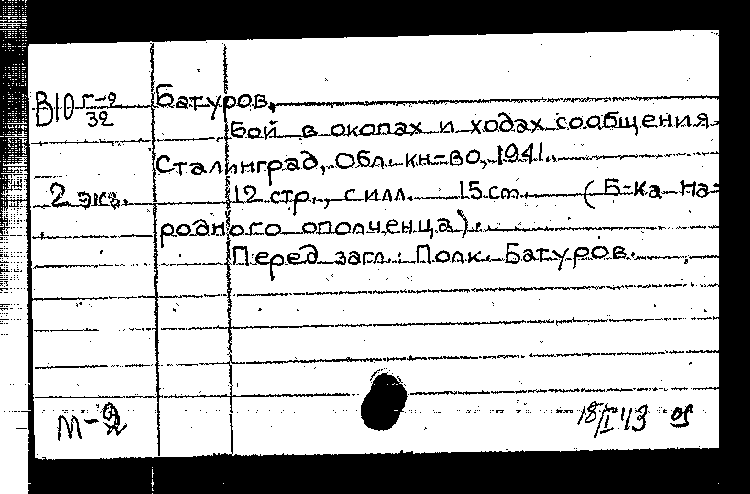 В10 г-2/32 Батуров.
Бой в окопах и ходах сообщения.
Сталинград, Обл. кн-во, 1941.
2 экз. 12 стр., с илл. 15 cm. (Б-ка на=
родного ополченца).
Перед загл.: Полк. Батуров.
М-2 18/I 43